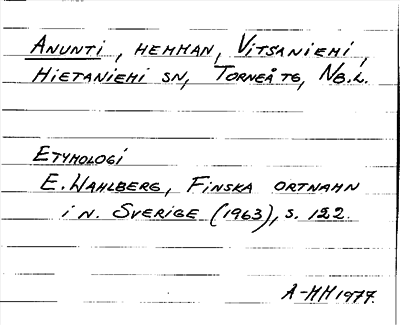 ANUNTI, HEMMAN, VITSANIEMI,
HIETANIEMI SN, TORNEÅ TG, NB.L.
ETYMOLOGI
E. WAHLBERG, FINSKA ORTNAMN
I N. SVERIGE (1963), S. 122
A-MH 1977.